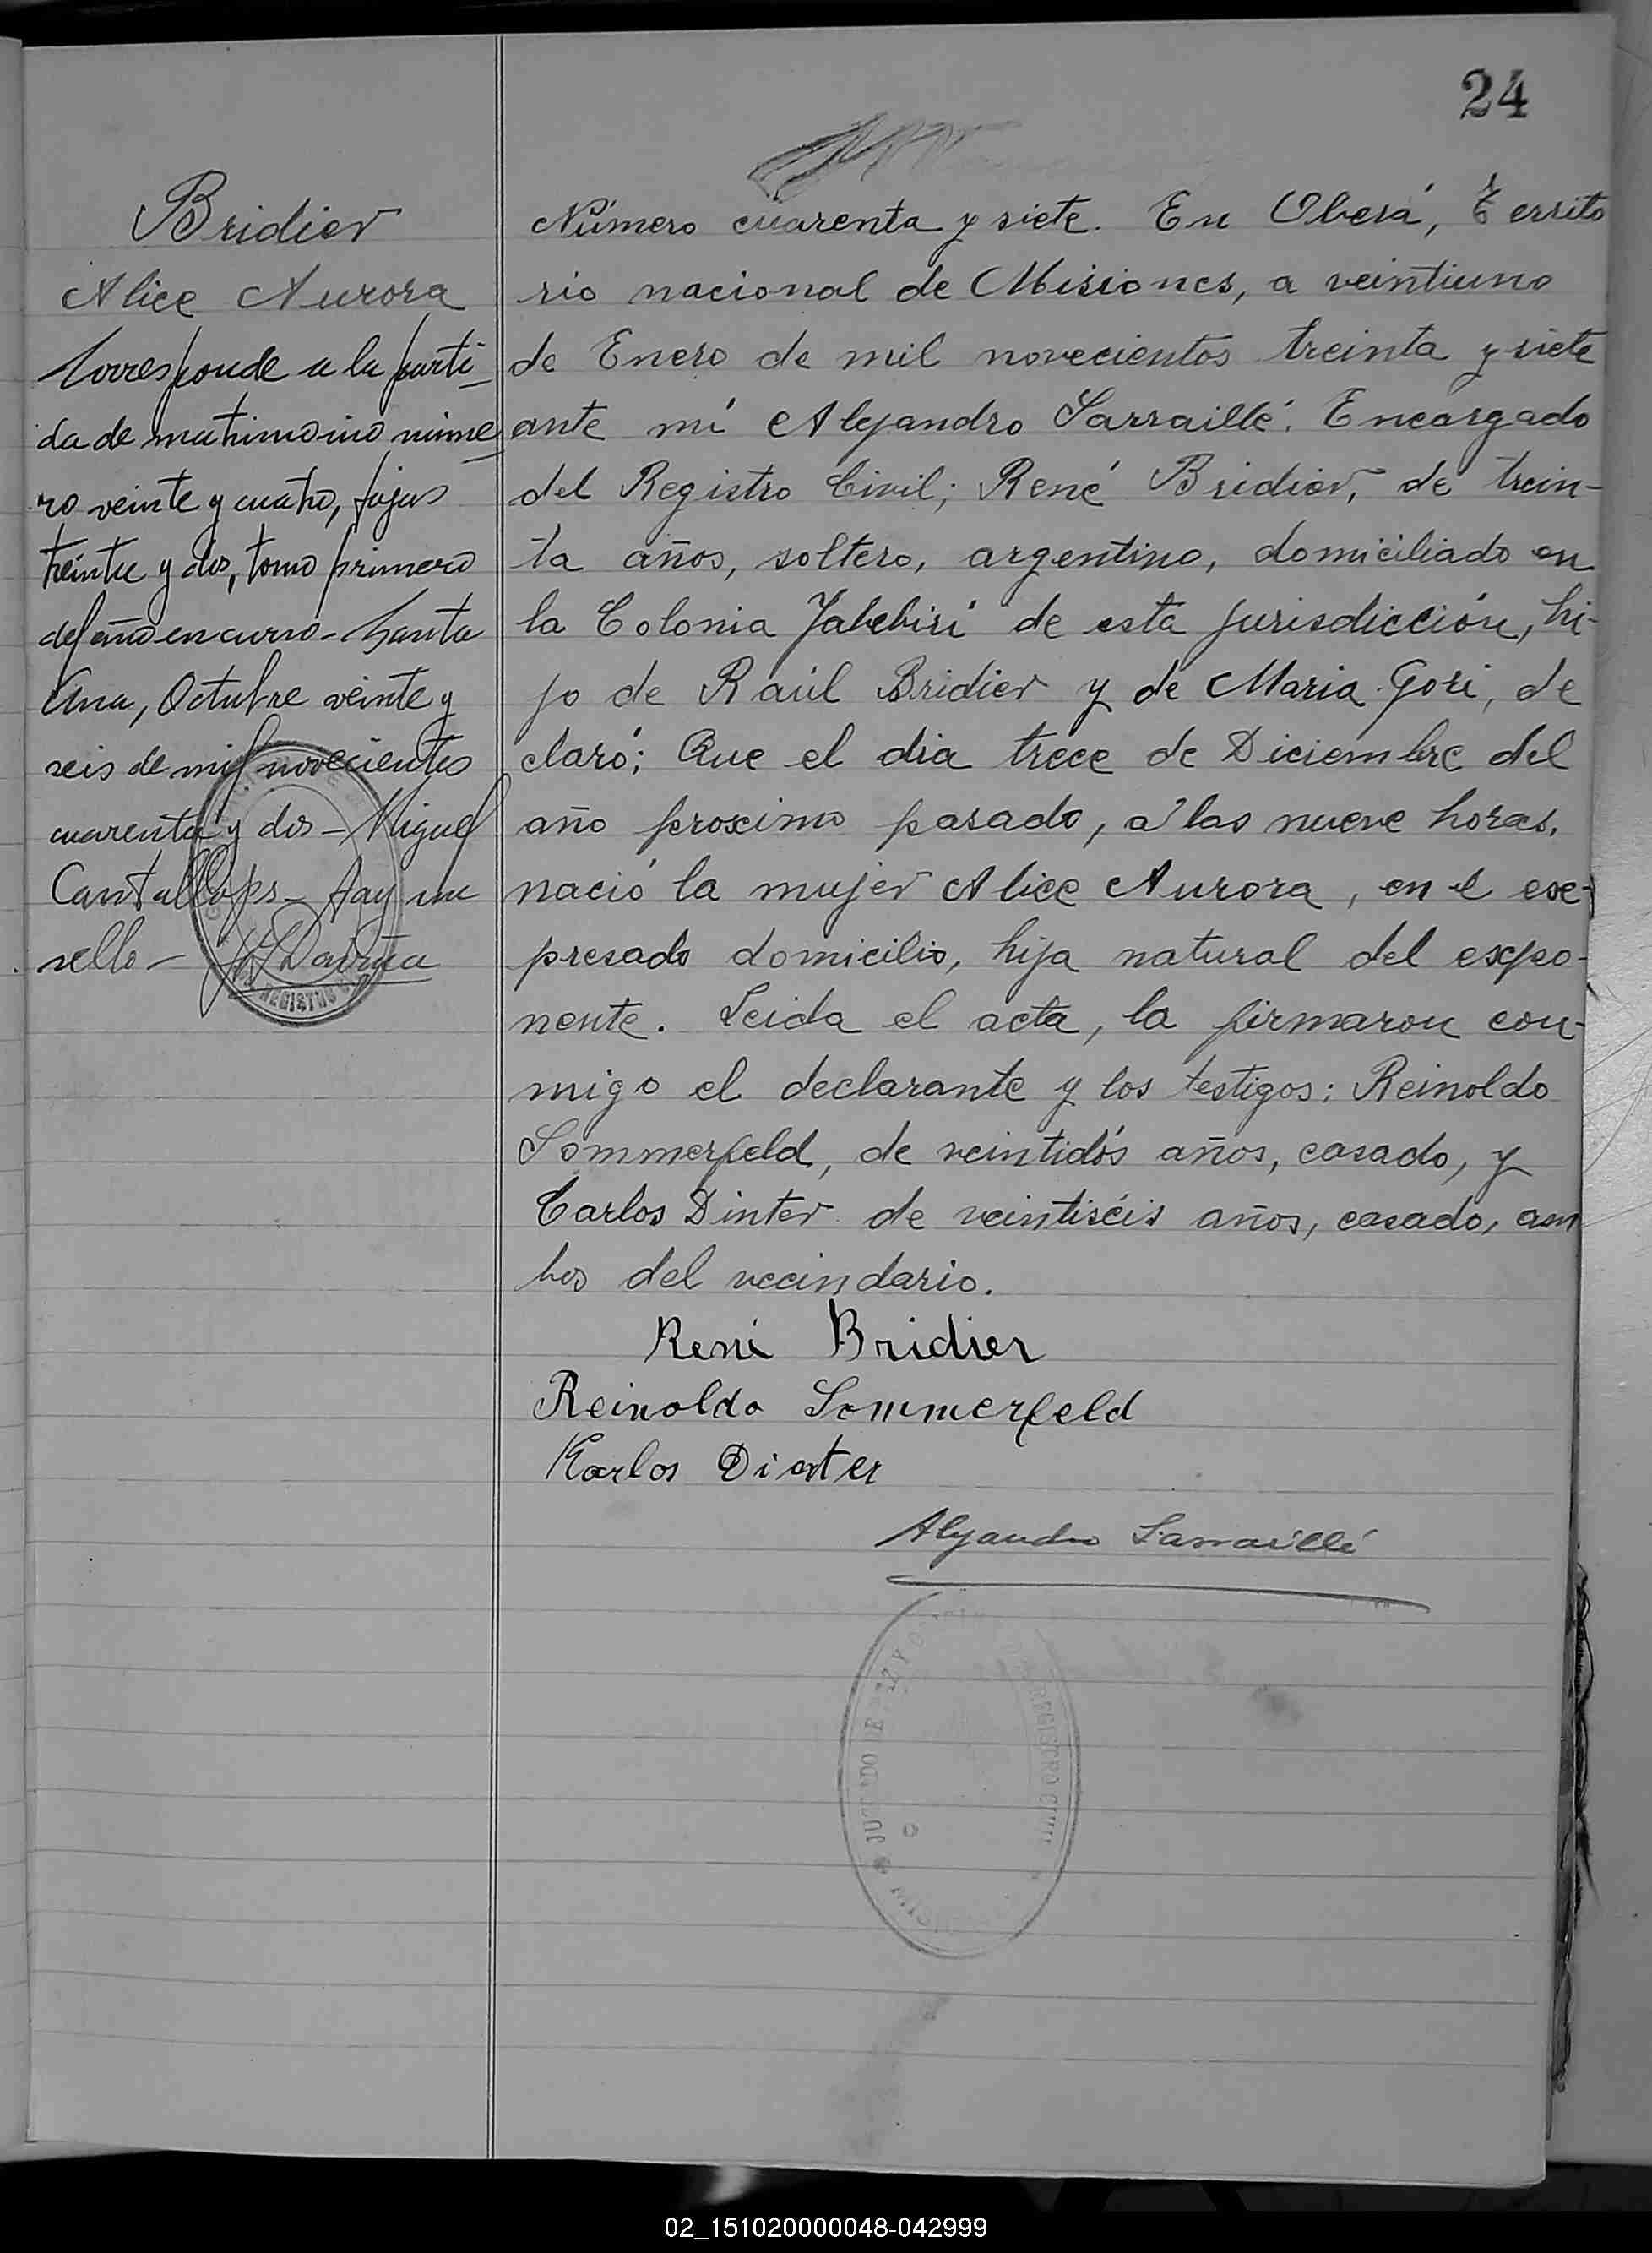 24
Bridier
Alice Aurora
Corresponde a la parti-
da de matrimonio núme-
ro veinte y cuatro, fojas
treinta y dos, tomo primero
del año en curso - Santa
Ana, Octubre veinte y
seis de mil novecientos
cuarenta y dos - Miguel
Cantallops - Hay un
sello -
REGISTRO
Número cuarenta y siete. En Oberá, Territo
rio nacional de Misiones, a veintiuno
de Enero de mil novecientos treinta y siete
ante mí Alejandro Sarraillé. Encargado
del Registro Civil; René Bridier, de trein-
ta años, soltero, argentino, domiciliado en
la Colonia Yabebirí de esta jurisdicción, hi-
jo de Raúl Bridier y de Maria Gori, de
claró: Que el dia trece de Diciembre del
año proximo pasado, a las nueve horas,
nació la mujer Alice Aurora, en el ex-
presado domicilio, hija natural del expo-
nente. Leida el acta, la firmaron con-
migo el declarante y los testigos: Reinoldo
Sommerfeld, de veintidós años, casado, y
Carlos Dinter de veintiséis años, casado, am
bos del vecindario.
René Bridier
Reinoldo Sommerfeld
Karlos Dinter
Alejandro Sarraillé
JUZGADO DE PAZ Y
REGISTRO CIVIL
02_151020000048-042999